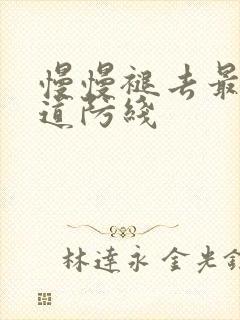 慢慢褪去最
道防线
林達永 金光